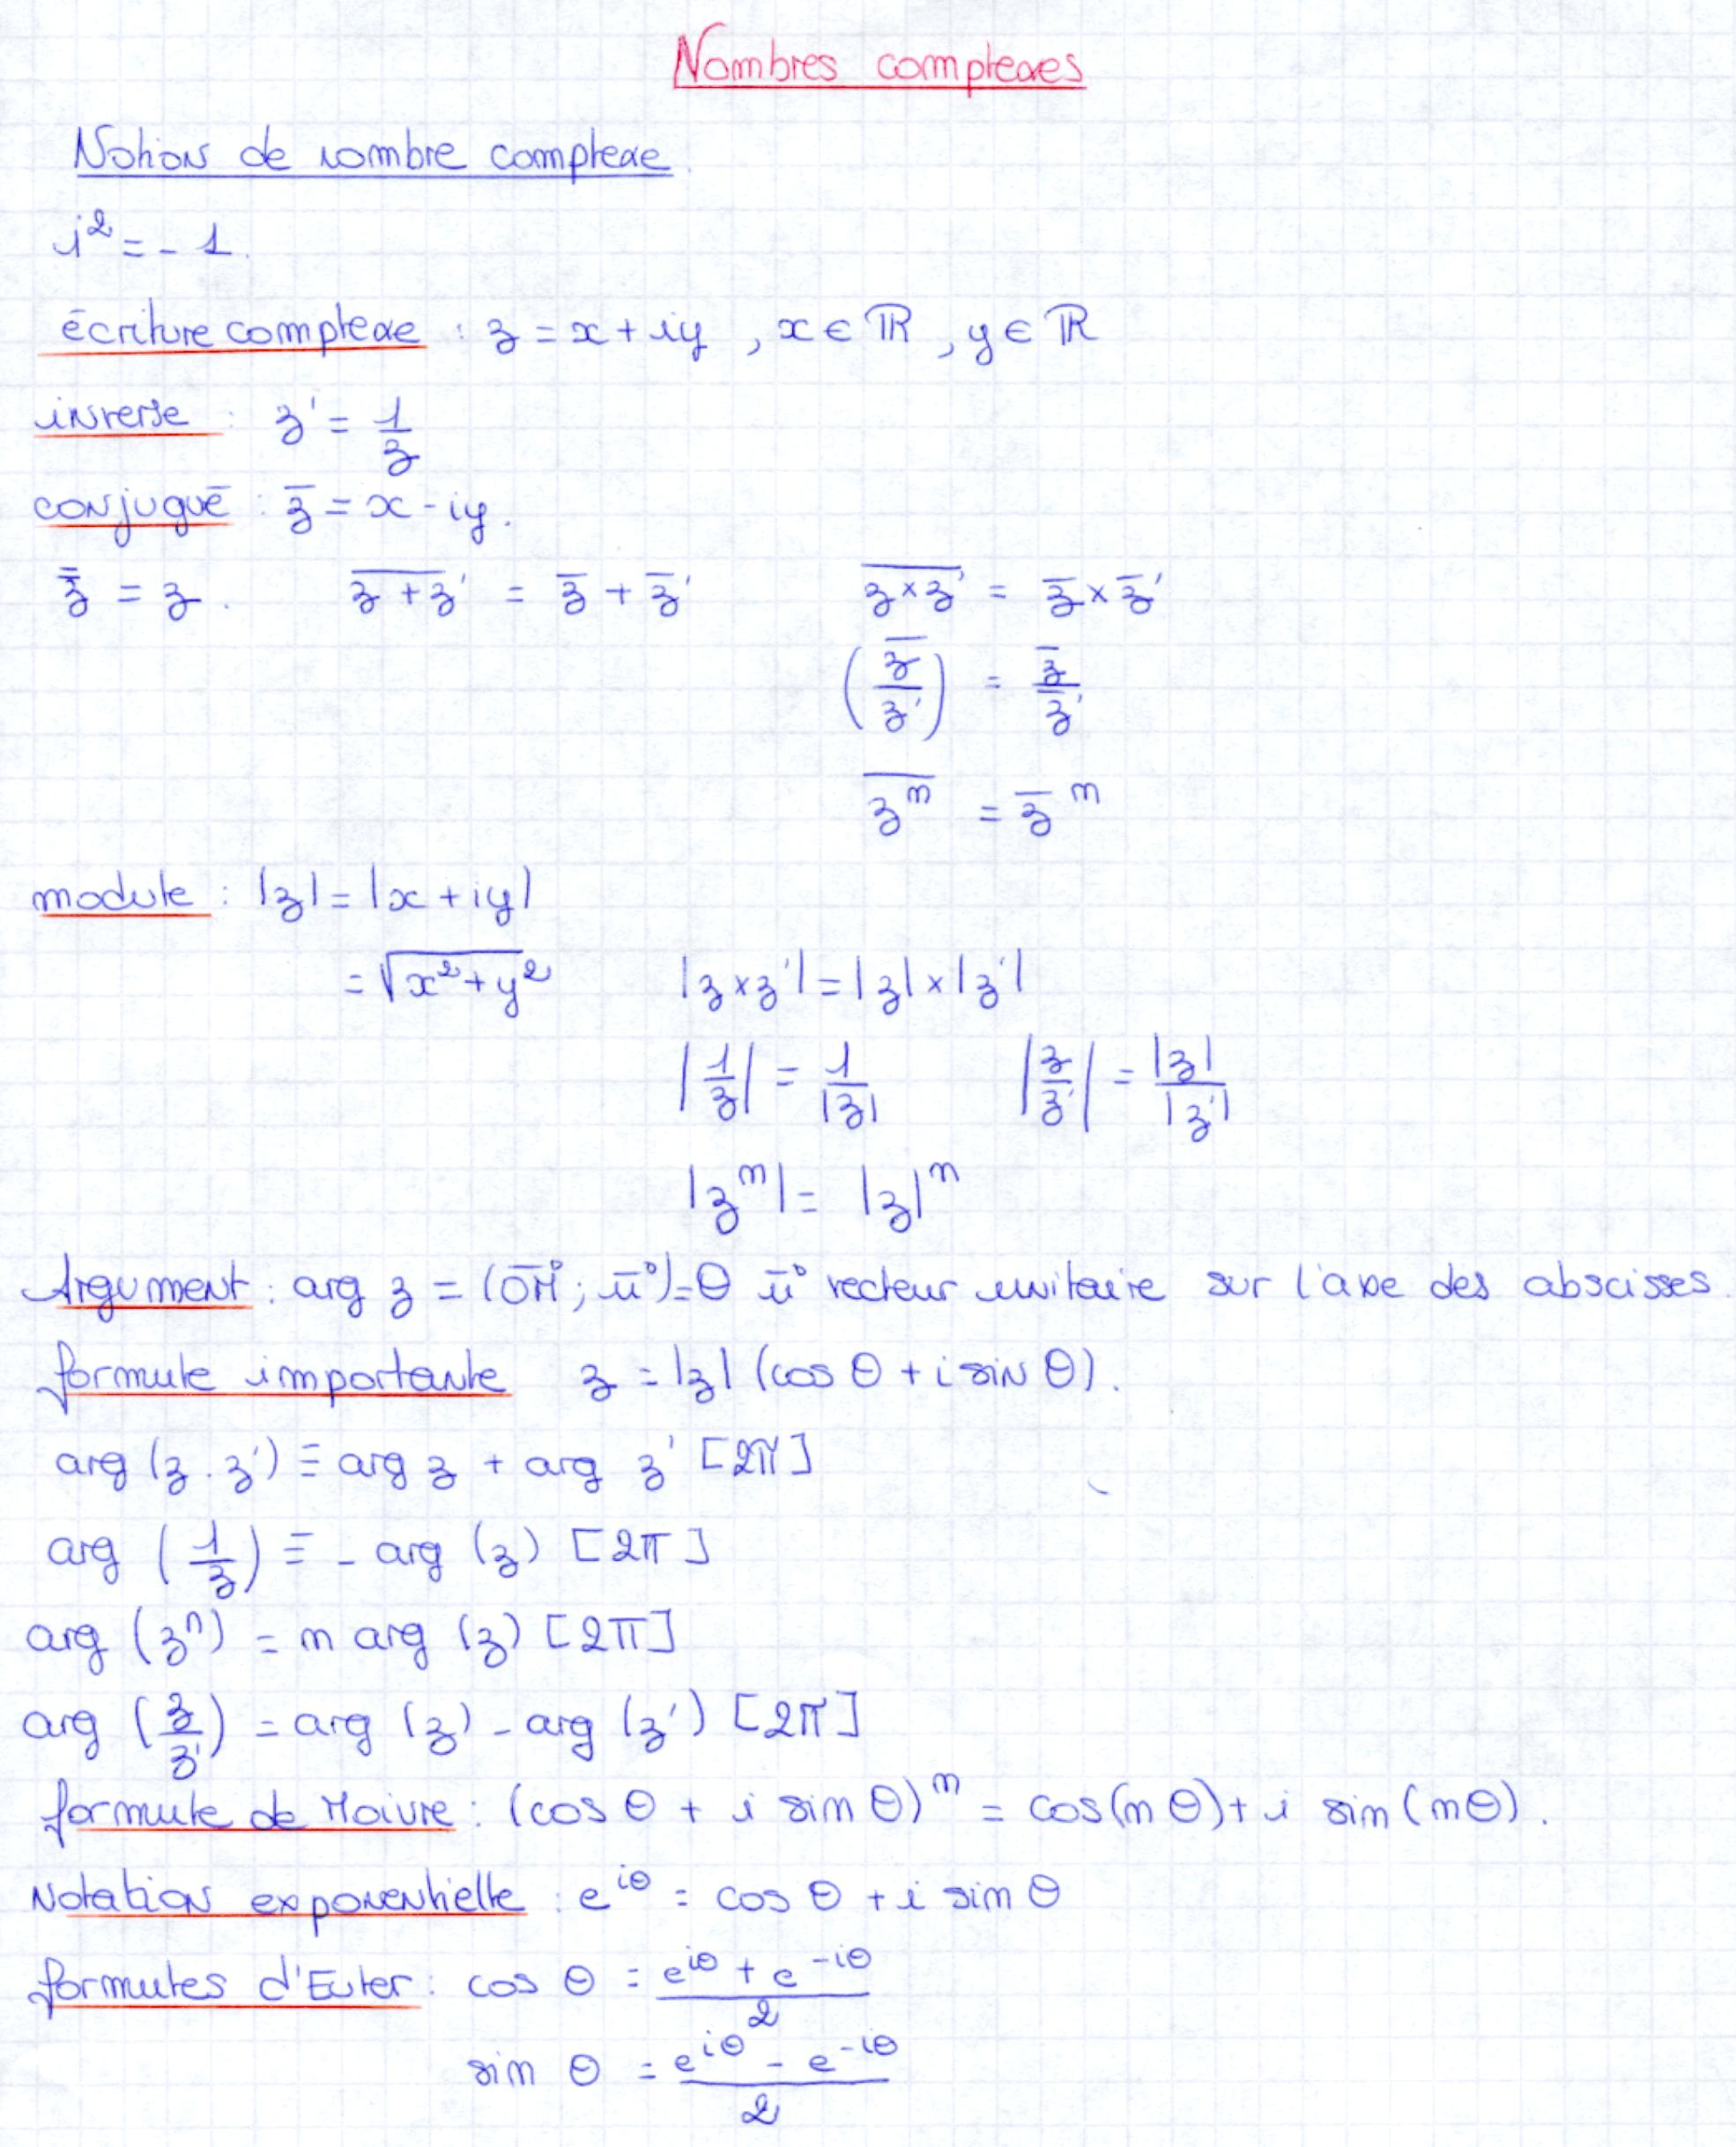 Nombres complexes
Notion de nombre complexe.
i² = - 1.
écriture complexe : z = x + iy , x ∈ ℝ , y ∈ ℝ
inverse : z' = 1/z
conjugué : z̅ = x - iy.
z̿ = z. \overline{z + z'} = z̅ + z̅' \overline{z × z'} = z̅ × z̅'
\overline{(z/z')} = z̅/z̅'
\overline{z^n} = z̅^n
module : |z| = |x + iy|
= √(x² + y²) |z × z'| = |z| × |z'|
|1/z| = 1/|z| |z/z'| = |z|/|z'|
|z^n| = |z|^n
Argument : arg z = (\vec{OM} ; \vec{u}) = θ \vec{u} vecteur unitaire sur l'axe des abscisses.
formule importante z = |z| (cos θ + i sin θ).
arg (z . z') ≡ arg z + arg z' [2π]
arg (1/z) ≡ - arg (z) [2π]
arg (z^n) = n arg (z) [2π]
arg (z/z') = arg (z) - arg (z') [2π]
formule de Moivre : (cos θ + i sin θ)^n = cos(n θ) + i sin (nθ).
Notation exponentielle : e^{iθ} = cos θ + i sin θ
formules d'Euler : cos θ = (e^{iθ} + e^{-iθ})/2
sin θ = (e^{iθ} - e^{-iθ})/2